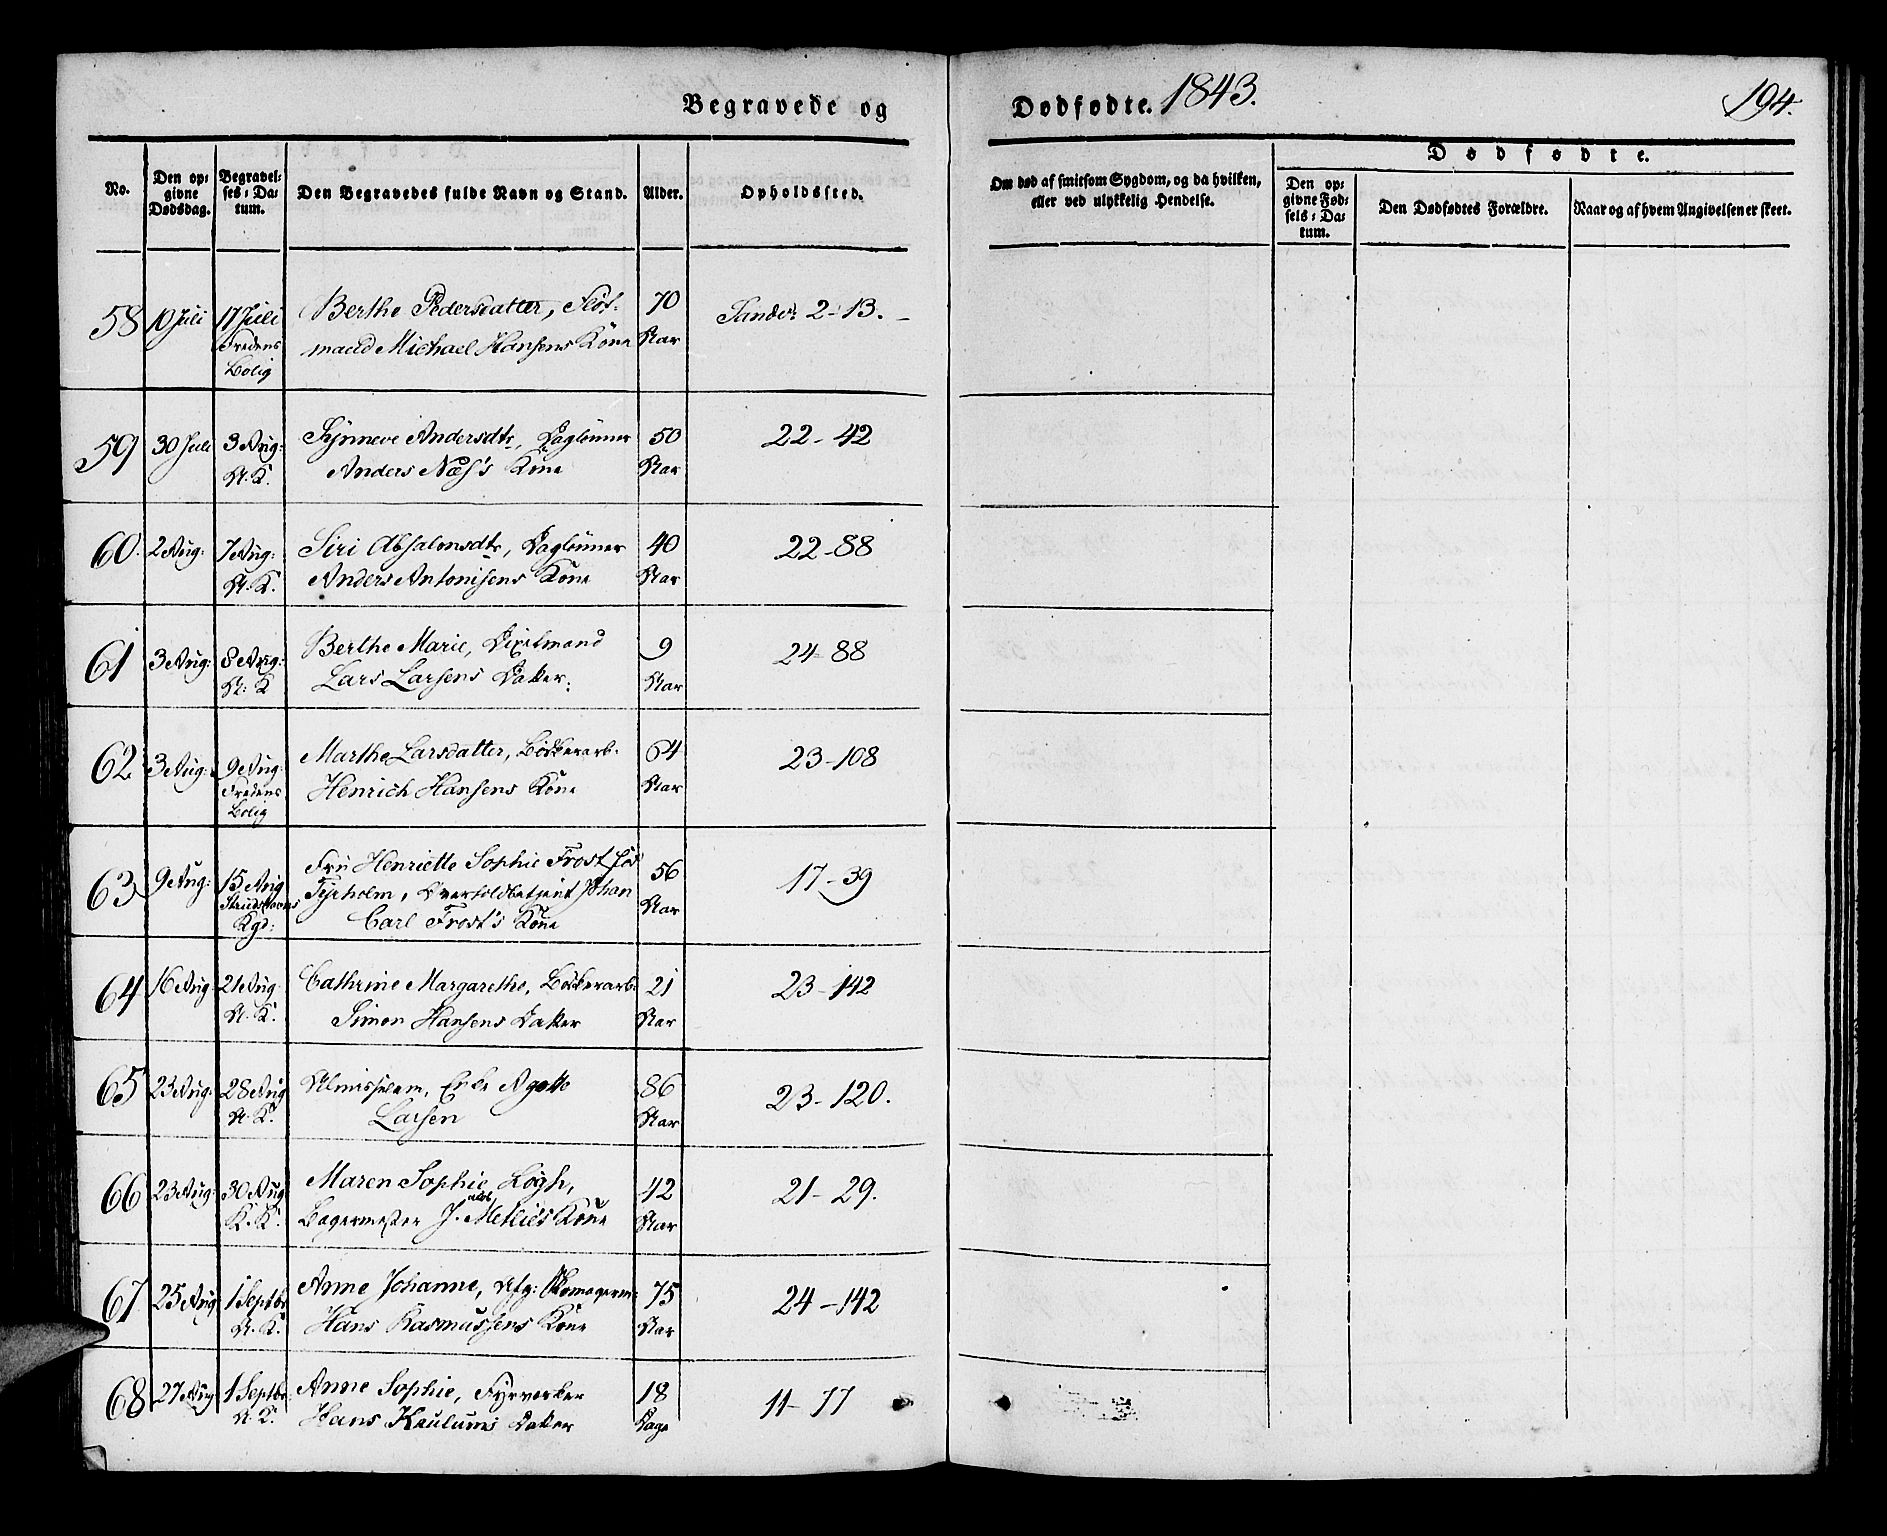 Begravede og
Dødfødte. 1843.
194.
No.
Den op-
givne
Dødsdag.
Begravel-
ses-Da-
tum.
Den Begravedes fulde Navn og Stand.
Alder.
Opholdssted.
Om død af smitsom Sygdom, og da hvilken,
eller ved ulykkelig Hendelse.
Dødfødte.
Den op-
givne Fød-
sels-Da-
tum.
Den Dødfødtes Forældre.
Naar og af hvem Angivelsen er skeet.
58 10 Juli 17 Juli Berthe Pedersdatter, 70 Sandv: 2-13.
Fredens mand Michael Hansens Kone Aar
Bolig
59 30 Juli 3 Aug: Synneve Andersdtr, Dagleiner 50 22-42
N. K. Anders Næss's Kone Aar
60. 2 Aug: 7 Aug: Siri Absalonsdtr, Dagleiner 40 22-88
N. K. Anders Antonisens Kone Aar
61 3 Aug: 8 Aug: Berthe Marie, 9 24-88
N. K Lars Larsens Datter. Aar
62 3 Aug: 9 Aug: Marthe Larsdatter, Bødkerarb. 64 23-108
Fredens Henrich Hansens Kone Aar
Bolig
63 9 Aug: 15 Aug Fru Henriette Sophie Frost fød 56 17-39
Tyrholm, Overtoldbetjent Johan Aar
Kgd: Carl Frost's Kone
64 16 Aug: 21 Aug Cathrine Margarethe, Bødkerarb: 21 23-142
N. K. Simon Hansens Datter Aar
65 23 Aug: 28 Aug Almisselem, Enke Agatte 86 23-120.
N. K. Larsen Aar
66 23 Aug: 30 Aug Maren Sophie Løgh, 42 21-29.
K. K. Bagermester J. Kone Aar
67 25 Aug: 1 Septbr Anne Johanne, Afg: Skomagerm: 75 24-142
N. K. Hans Rasmussens Kone Aar
68 27 Aug 1 Septbr: Anne Sophie, Fyrverker 18 11-77
N. K. Hans Datter Dage